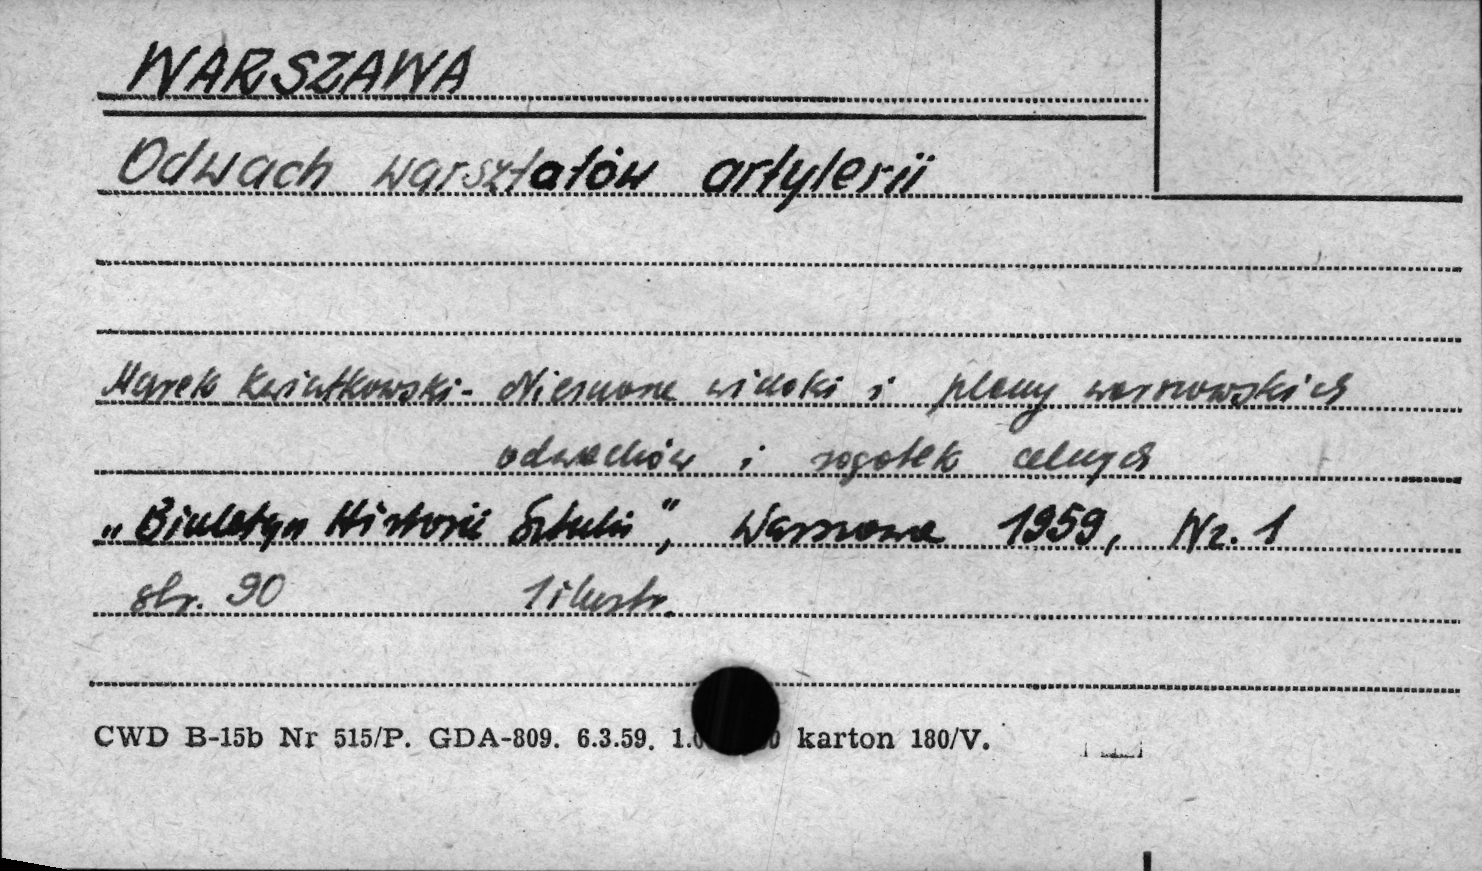 WARSZAWA
Odwach warsztatów artylerii
Marek Kwiatkowski - Nieznane widoki i plany warszawskich
odwachów i rogatek celnych
„Biuletyn Historii Sztuki", Warszawa 1959, Nr. 1
str. 90 1 ilustr.
CWD B-15b Nr 515/P. GDA-809. 6.3.59. karton 180/V.